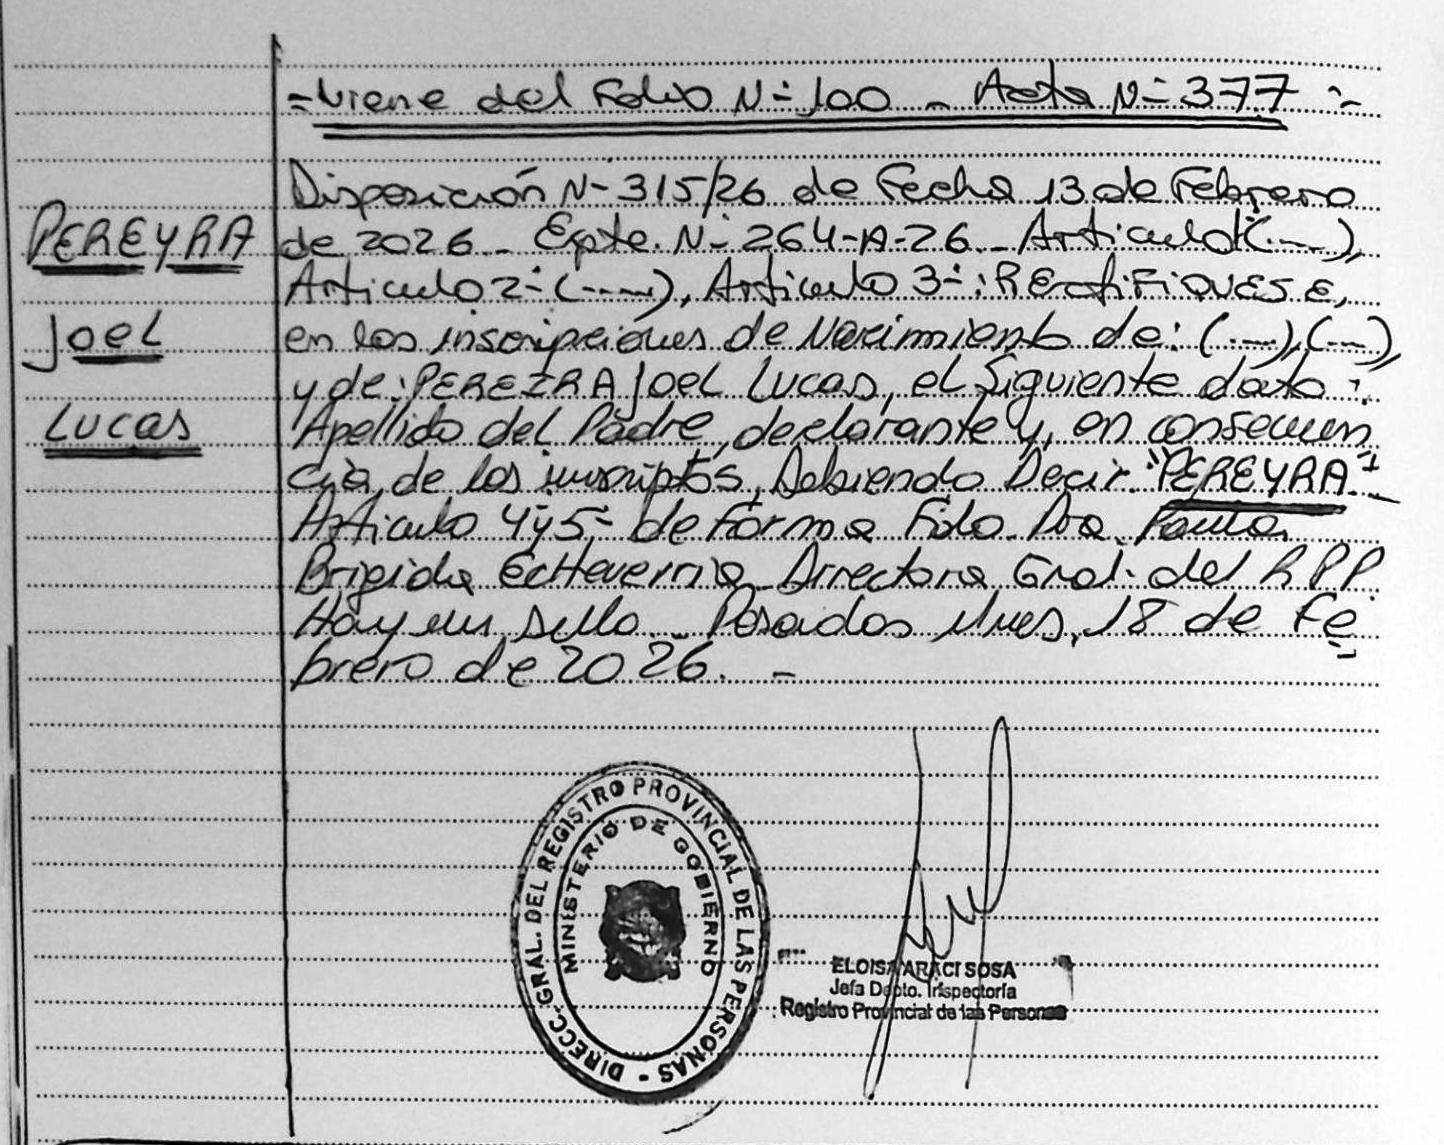 =Viene del Folio N- 100 - Acta N- 377 :-
Disposición N- 315/26 de Fecha 13 de Febrero
PEREYRA
de 2026 - Expte. N- 264-A-26 - Articulo 1-(----),
Articulo 2-(-----), Articulo 3-: REctifiQUESE,
Joel
en las inscripciones de Nacimiento de: (----), (----),
y de: PEREIRA Joel Lucas, el siguiente dato:
Lucas
Apellido del Padre, declarante y, en consecuen
cia, de los inscriptos, Debiendo Decir "PEREYRA"-
Articulo 4y5- de forma Fdo. Dra. Paula
Brigida Echeverria Directora Gral. del R P P.
Hay un sello - Posadas Mnes, 18 de Fe
brero de 2026. -
DIRECC. GRAL. DEL REGISTRO PROVINCIAL DE LAS PERSONAS -
MINISTERIO DE GOBIERNO
ELOISA ARACI SOSA
Jefa Dpto. Inspectoría
Registro Provincial de las Personas